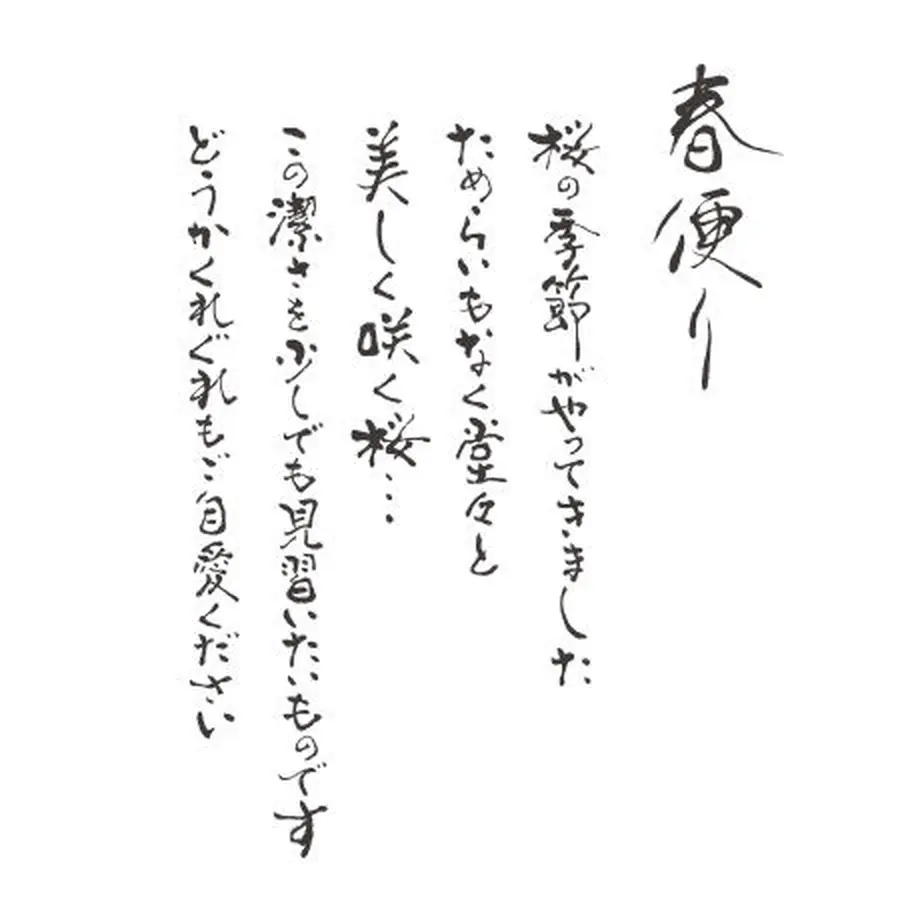 春便り
桜の季節がやってきました
ためらいもなく堂々と
美しく咲く桜…
この潔さを少しでも見習いたいものです
どうかくれぐれもご自愛ください